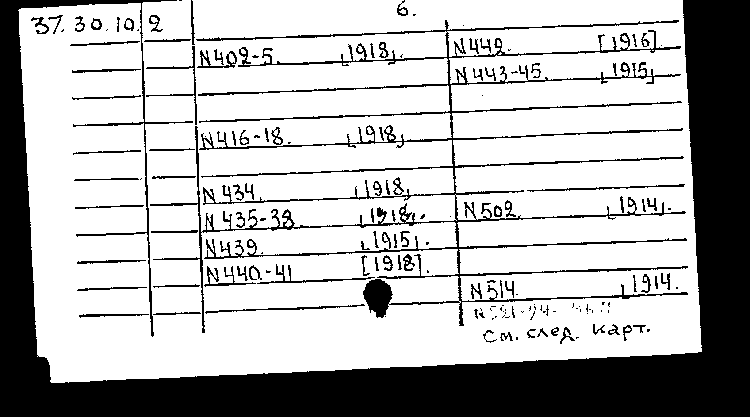 6.
37.30.10. 2
N402-5. [1918].
N416-18. [1918]
N434. [1918]
N435-38 [1918].
N439. [1915].
N440-41 [1918].
N442. [1916]
N443-45. [1915]
N502. [1914].
N514 [1914.
См. след. карт.